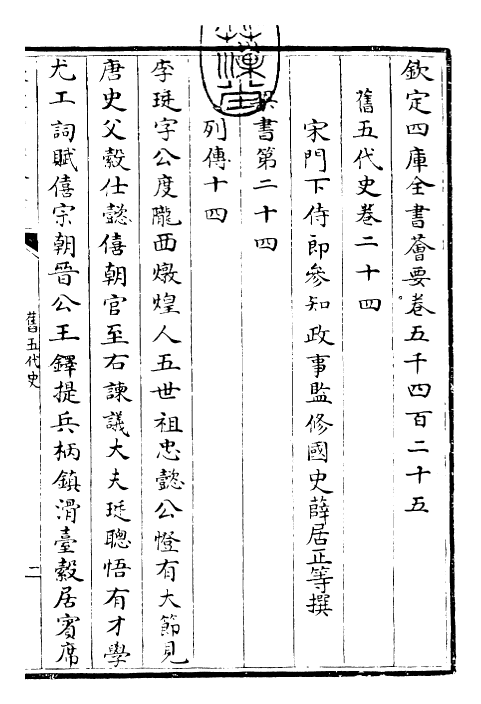 欽定四庫全書薈要卷五千四百二十五
舊五代史卷二十四
宋門下侍郎參知政事監修國史薛居正等撰
梁書第二十四
列傳十四
李珽字公度隴西燉煌人五世祖忠懿公憕有大節見
唐史父縠仕懿僖朝官至右諫議大夫珽聰悟有才學
尤工詞賦僖宗朝晉公王鐸提兵柄鎮滑臺縠居賓席
舊五代史
二